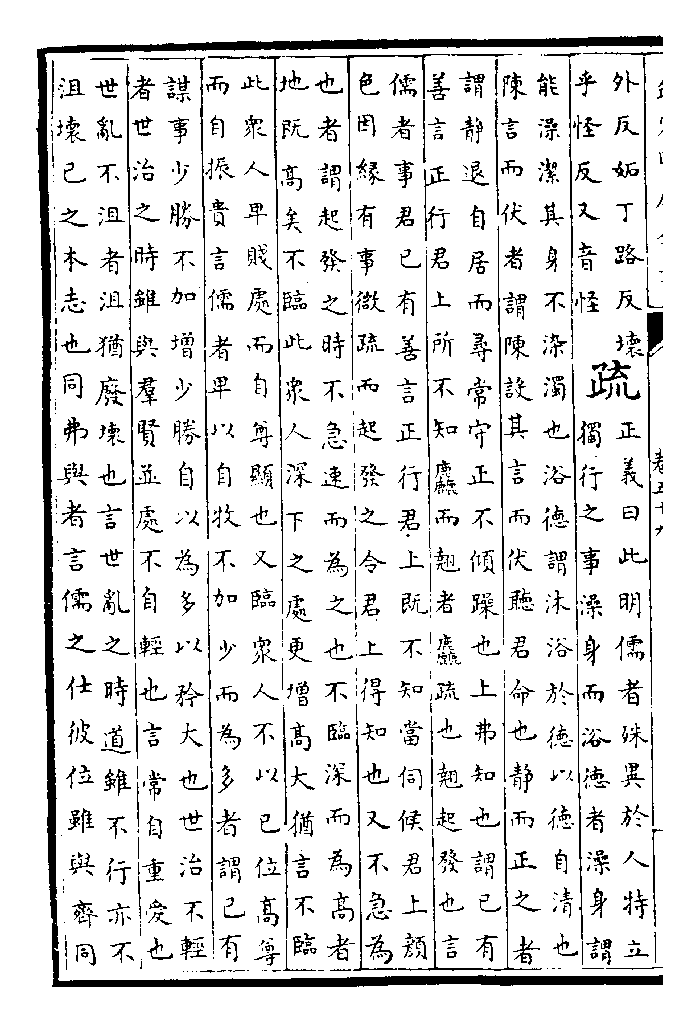 卷五十九
外反妬丁路反壞
乎怪反又音怪
疏
正義曰此明儒者殊異於人特立
獨行之事澡身而浴德者澡身謂
能澡潔其身不染濁也浴德謂沐浴於德以德自清也
陳言而伏者謂陳設其言而伏聽君命也靜而正之者
謂靜退自居而尋常守正不傾躁也上弗知也謂已有
善言正行君上所不知麤而翹者麤疏也翹起發也言
儒者事君已有善言正行君上既不知當伺候君上顏
色因緣有事微疏而起發之令君上得知也又不急為
也者謂起發之時不急速而為之也不臨深而為高者
地既高矣不臨此衆人深下之處更增高大猶言不臨
此衆人卑賤處而自尊顯也又臨衆人不以已位高尊
而自振貴言儒者卑以自牧不加少而為多者謂已有
謀事少勝不加增少勝自以為多以矜大也世治不輕
者世治之時雖與羣賢並處不自輕也言常自重愛也
世亂不沮者沮猶廢壞也言世亂之時道雖不行亦不
沮壞已之本志也同弗與者言儒之仕彼位雖與齊同